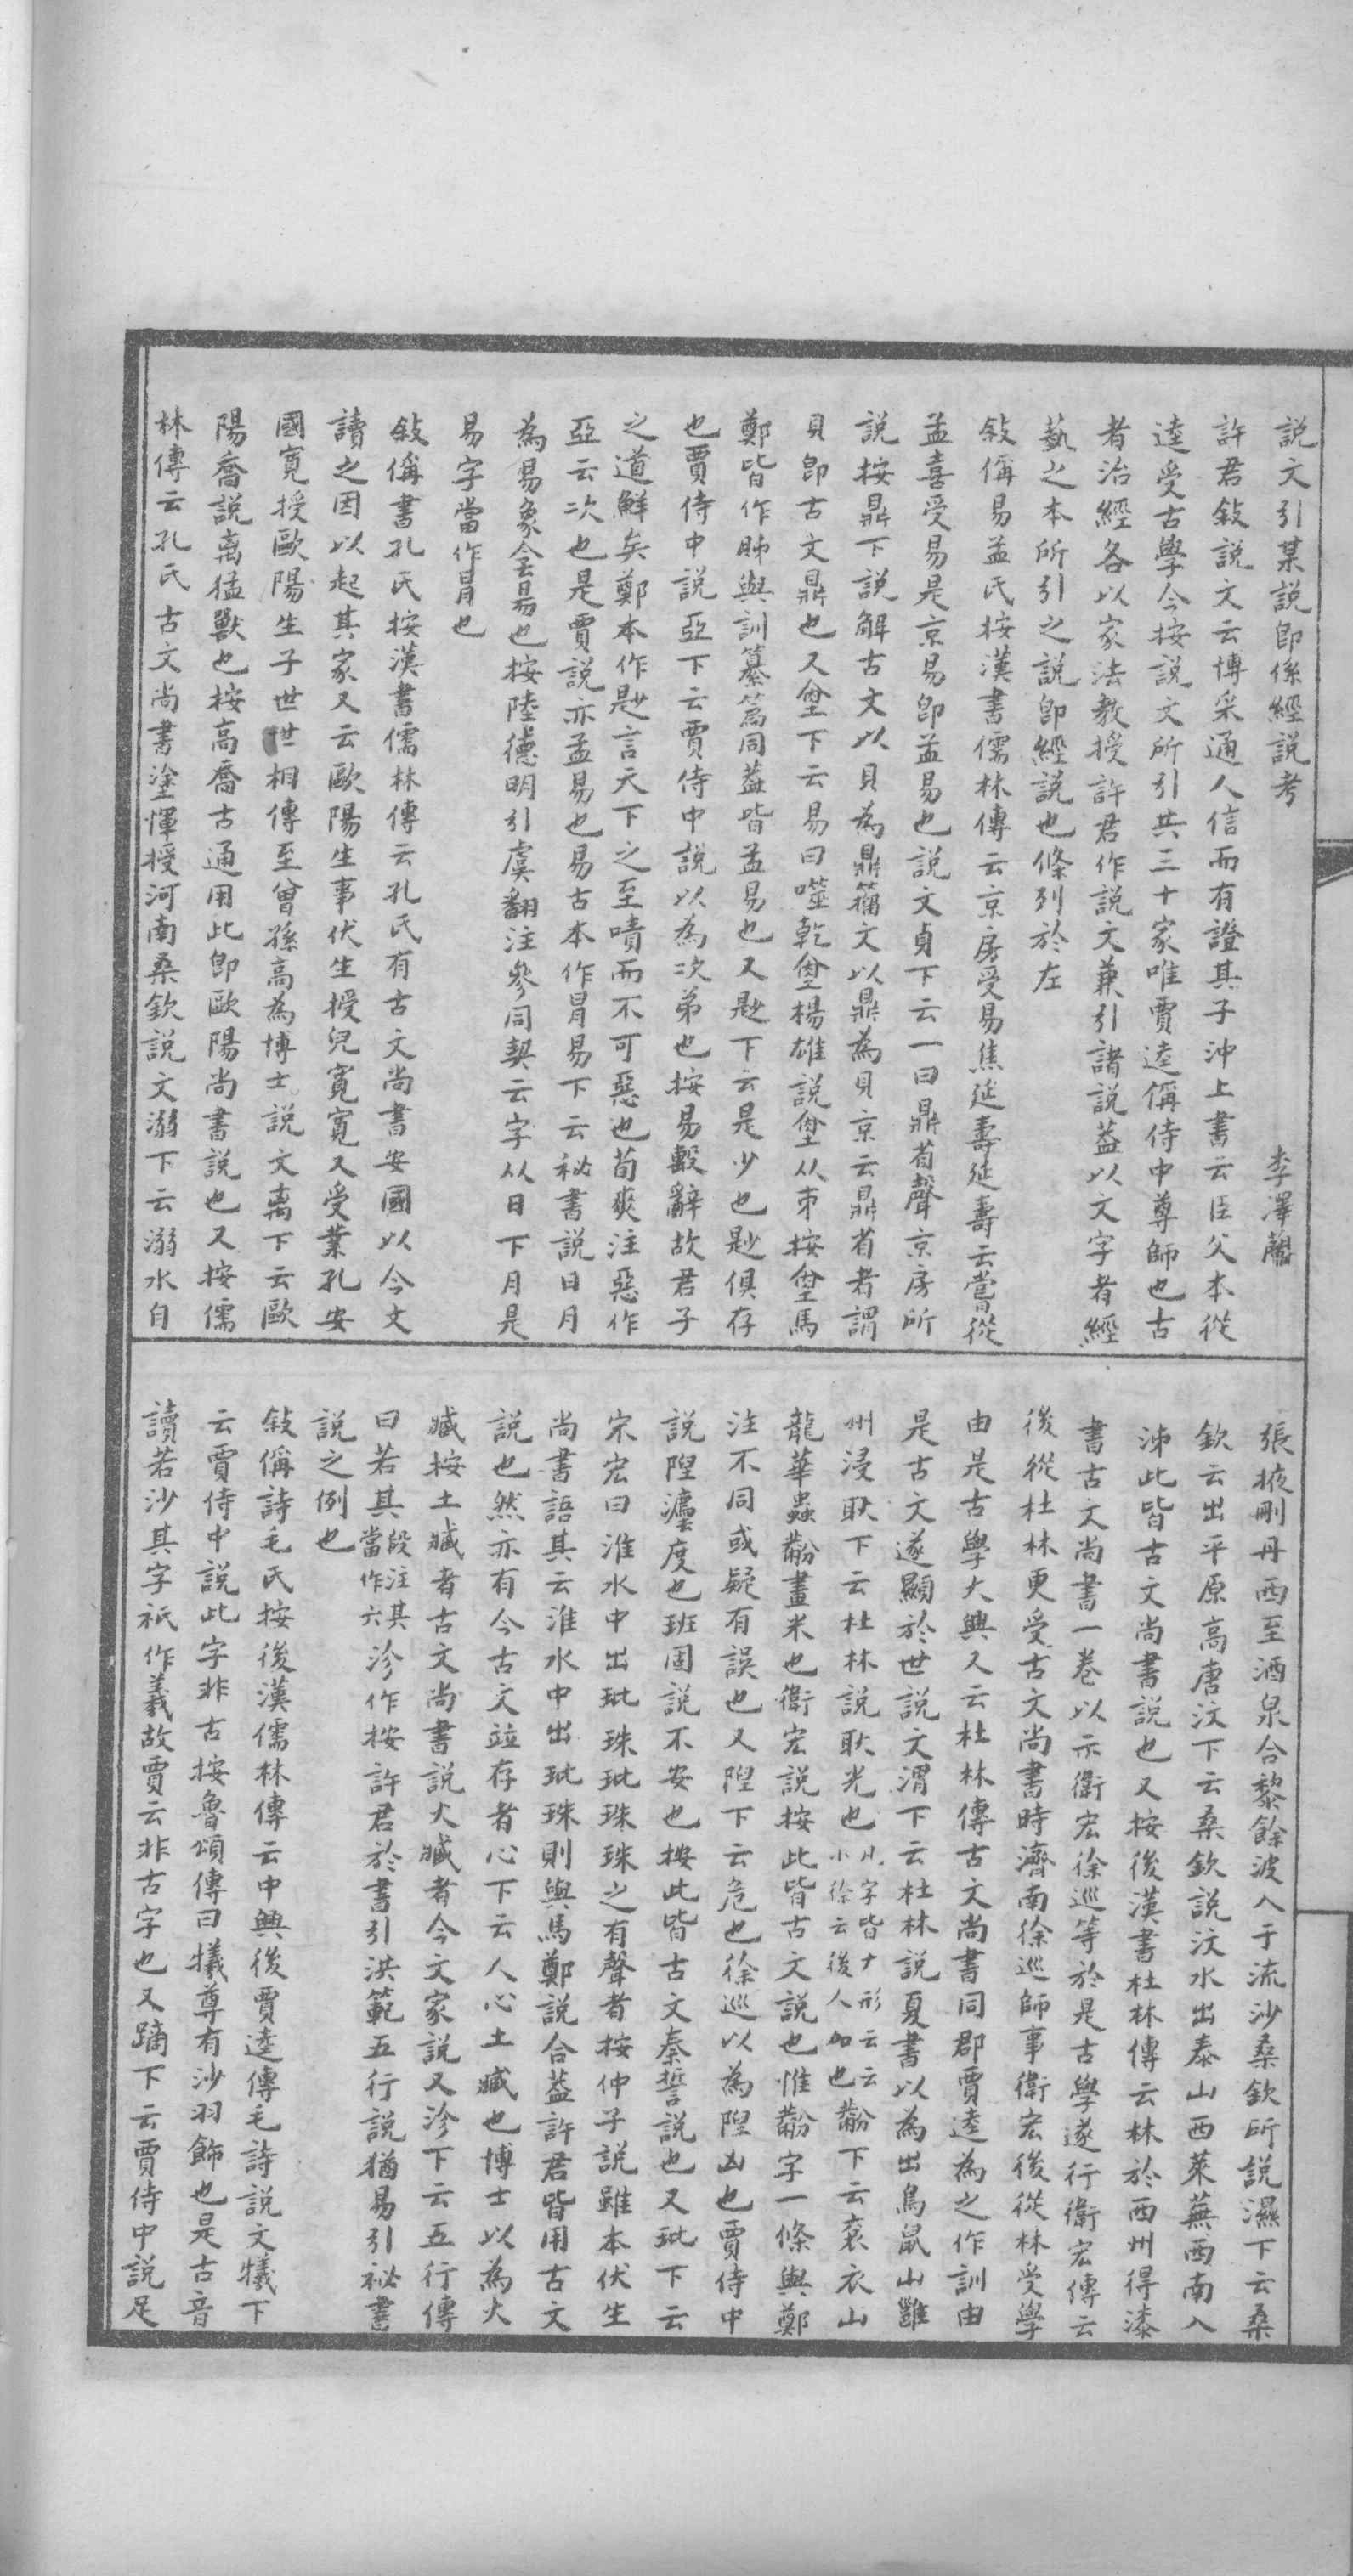 説文引某説即係經説考
李澤蘭
許君敍説文云博采通人信而有證其子沖上書云臣父本從
逵受古學今按説文所引共三十家唯賈逵偁侍中尊師也古
者治經各以家法教授許君作説文兼引諸説葢以文字者經
藝之本所引之説即經説也條列於左
敍偁易孟氏按漢書儒林傳云京房受易焦延壽延壽云嘗從
孟喜受易是京易即孟易也説文貞下云一曰鼎省聲京房所
説按鼎下説解古文以貝為鼎籀文以鼎為貝京云鼎省者謂
貝即古文鼎也又𠌶下云易曰噬乾𠌶楊雄説𠌶从𠂔按𠌶馬
鄭皆作胏與訓纂篇同葢皆孟易也又尟下云是少也尟俱存
也賈侍中説亞下云賈侍中説以為次弟也按易繫辭故君子
之道鮮矣鄭本作尟言天下之至嘖而不可惡也荀爽注惡作
亞云次也是賈説亦孟易也易古本作冐易下云祕書説日月
為易象侌昜也按陸德明引虞翻注參同契云字从日下月是
易字當作冐也
敍偁書孔氏按漢書儒林傳云孔氏有古文尚書安國以今文
讀之因以起其家又云歐陽生事伏生授兒寬寬又受業孔安
國寛授歐陽生子世世相傳至曾孫高為博士説文离下云歐
陽喬説离猛獸也按高喬古通用此即歐陽尚書説也又按儒
林傳云孔氏古文尚書塗惲授河南桑欽説文溺下云溺水自
張掖刪丹西至酒泉合黎餘波入于流沙桑欽所説濕下云桑
欽云出平原高唐汶下云桑欽説汶水出泰山西萊蕪西南入
泲此皆古文尚書説也又按後漢書杜林傳云林於西州得漆
書古文尚書一卷以示衛宏徐巡等於是古學遂行衛宏傳云
後從杜林更受古文尚書時濟南徐巡師事衛宏後從林受學
由是古學大興又云杜林傳古文尚書同郡賈逵為之作訓由
是古文遂顯於世説文渭下云杜林説夏書以為出鳥鼠山雝
州浸耿下云杜林説耿光也凡字皆ナ形云云小徐云後人加也黺下云衮衣山
龍華蟲黺畫米也衛宏説按此皆古文説也惟黺字一條與鄭
注不同或疑有誤也又隉下云危也徐巡以為隉凶也賈侍中
説隉灋度也班固説不安也按此皆古文秦誓説也又玭下云
宋宏曰淮水中出玭珠玭珠珠之有聲者按仲子説雖本伏生
尚書語其云淮水中出玭珠則與馬鄭説合葢許君皆用古文
説也然亦有今古文竝存者心下云人心土臧也博士以為火
臧按土臧者古文尚書説火臧者今文家説又沴下云五行傳
曰若其段注其當作六沴作按許君於書引洪範五行説猶易引祕書
説之例也
敍偁詩毛氏按後漢儒林傳云中興後賈逵傳毛詩説文犧下
云賈侍中説此字非古按魯頌傳曰犧尊有沙羽飾也是古音
讀若沙其字祇作羲故賈云非古字也又蹢下云賈侍中説足